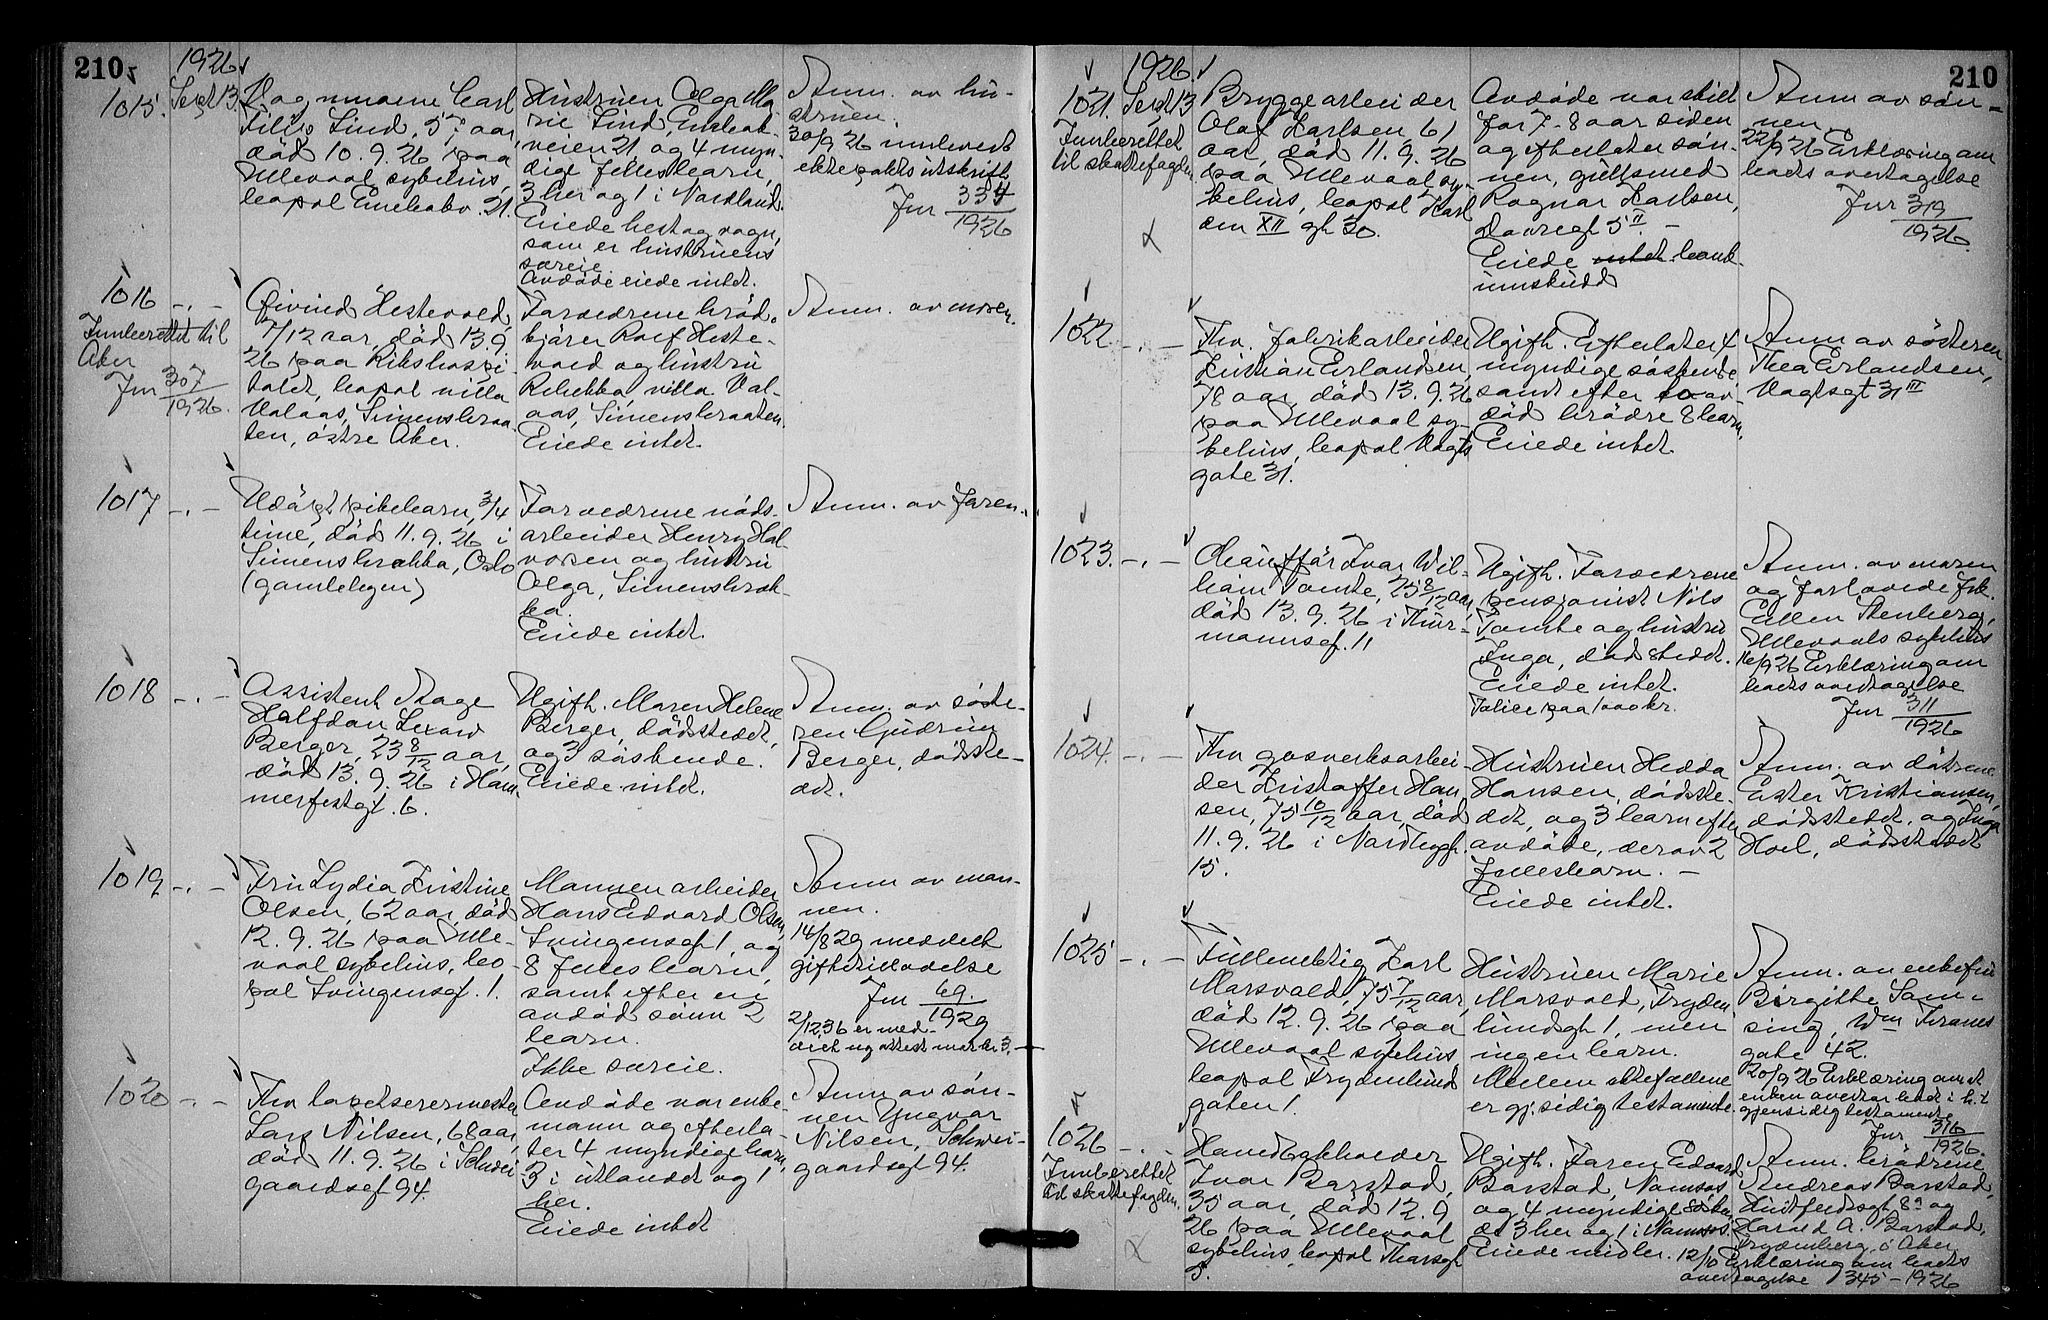 210
1926
1015. Sept 13.
Vognmann Carl
Lind, 57 aar,
død 10.9.26 paa
Ullevaal sykehus,
bopæl Enebakv. 21.
Hustruen Olga Ma-
rie Lind, Enebak-
veien 21 og 4 myn-
dige fellesbarn,
3 her og 1 i Nordland.
Eiede hest og vogn,
som er hustruens
særeie
Avdøde eiede intet.
Anm. av hu-
struen.
30/9 26 innlevert
ektepakts utskrift
Jnr 334/1926
1016 -.-
Innberettet til
Aker
Jnr 307/1926.
Øivind Hestvold,
7/12 aar, død 13.9.
26 paa Rikshospi-
talet, bopæl villa
Valaas, Simensbraa-
ten, østre Aker.
Forældrene brød-
kjører Rolf Heste-
vold og hustru
Rebekka, villa Val-
aas, Simensbraaten.
Eiede intet.
Anm. av moren.
1017 -.-
Udøpt pikebarn, 3/4
time, død 11.9.26 i
Simensbrekka, Oslo
(gamlebyen)
Forældrene nøds-
arbeider Henry Hal-
vorsen og hustru
Olga, Simensbrek-
ka.
Eiede intet.
Anm. av faren.
1018 -.-
Assistent Aage
Halfdan
Berger, 23 8/12 aar,
død 13.9.26 i Ham-
merfestgt. 6.
Ugift. Moren Helene
Berger, dødstedet,
og 3 søskende.
Eiede intet.
Anm. av søste-
ren Gudrun
Berger, dødste-
det.
1019 -.-
Fru Lydia Kristine
Olsen, 62 aar, død
12.9.26 paa Ulle-
vaal sykehus, bo-
pæl Svingensgt. 1.
Mannen arbeider
Hans Edvard Olsen,
Svingensgt 1, og
8 fellesbarn,
samt efter en
avdød sønn 2
barn.
Ikke særeie.
Anm av man-
nen.
14/8 29 meddelt
giftetillatelse
Jnr 69./1929
2/12 36 er med-
delt ny attest
1020 -.-
Fhv tapetserermester
Lars Nilsen, 68 aar,
død 11.9.26 i Schwei-
gaardsgt 94.
Avdøde var enke-
mann og efterla-
ter 4 myndige barn,
3 i utlandet og 1
her.
Eiede intet
Anm av søn-
nen Yngvar
Nilsen, Schwei-
gaardsgt 94.
210
1926.
1021. Sept 13
Innberettet
til skattefogden
Bryggearbeider
Olaf Karlsen 61
aar, død 11.9.26
paa Ullevaal sy-
kehus, bopæl Karl
den XII gt 30.
Avdøde var skilt
for 7-8 aar siden
og efterlater søn-
nen, gullsmed
Ragnar Karlsen,
5 II. -
Eiede intet bank-
innskudd
Anm av søn-
nen
22/9 26 Erklæring om
boets overtagelse
Jnr 319/1926.
1022 -.-
Fhv. fabrikarbeider
Kristian Erlandsen
78 aar, død 13.9.26
paa Ullevaal sy-
kehus, bopæl Vogts
gate 31.
Ugift. Efterlater 4
myndige søskende
samt efter to av-
død brødre 8 barn.
Eiede intet.
Anm av søsteren
Thea Erlandsen,
Vogtsgt 31 III
1023. -.-
Chauffør Ivar Wil-
liam Tomte, 25 8/12 aar,
død 13.9.26 i Thur-
mannsgt. 11
Ugift. Forældrene
pensjonist Nils
Tomte og hustru
Inga, dødstedet.
Eiede intet.
Police paa 1000 kr.
Anm. av moren
og forlovede frk.
Ellen Stenberg,
Ullevaals sykehus
16/9 26 Erklæring om
boets overtagelse
Jnr 311/1926
1024. -.-
Fhv gasverksarbei-
der Kristoffer Han-
sen, 75 10/12 aar, død
11.9.26 i Nordbygt.
15.
Hustruen Hedda
Hansen, dødste-
det, og 3 barn efter
avdøde, derav 2
fellesbarn. -
Eiede intet.
Anm. av døtrene
Ester Kristiansen,
dødstedet, og Inga
Hoel, dødstedet
1025 -.-
Fullmektig Karl
Marsvold, 75 7/12 aar,
død 12.9.26 paa
Ullevaal sykehus
bopæl Frydenlund
gaten 1.
Hustruen Marie
Marsvold, Fryden-
lundgt 1, men
ingen barn.
Mellem ektefellene
er gj.sidig testamente.
Anm. av enkefru
Birgitte Sam-
sing, Wm Thranes
gate 42.
20/9 26 Erklæring om at
enken overtar boet i h. t
gjensidig testamente
Jnr. 316/1926.
1026 -.-
Innberettet
til skattefogden.
Ivar Barstad,
35 aar, død 12.9
26 paa Ullevaal
sykehus, bopæl Thorsgt
5.
Ugift. Faren Edvard
Barstad, Namsos
og 4 myndige søsken-
de 3 her og 1 i Namsos.
Eiede midler.
Anm. brødrene
Andreas Barstad,
Huitfeldtsgt 8a og
Harald A. Barstad,
Frydenberg, Ø Aker
12/10 Erklæring om boets
overtagelse 345-1926